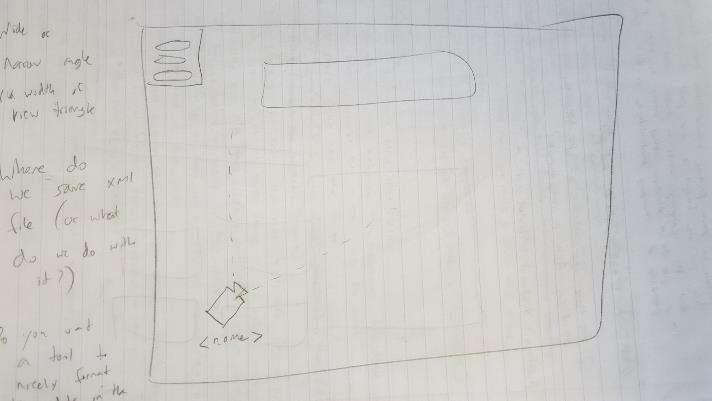 wide or
narrow angle
width of
view triangle
Where do
we save xml
file (or what
do we do with
it?)
<name>
Do you want
a tool to
nicely format
in the